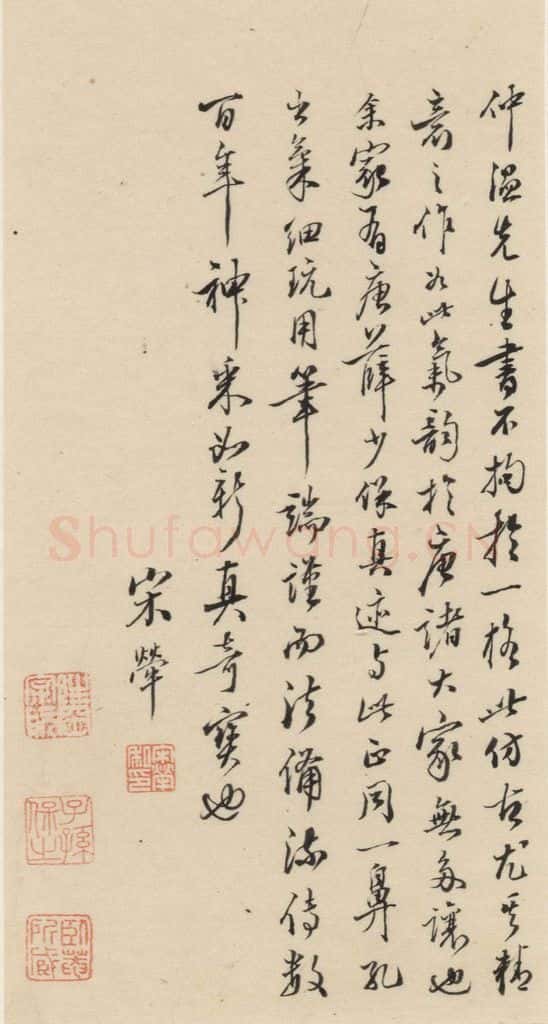 仲溫先生書不拘於一格此仿古尤其精
意之作如此氣韵於唐諸大家無多讓也
余家有唐薛少保真迹与此正同一鼻孔
出氣細玩用筆端謹而法備流傳數
百年神采如新真奇寶也
宋犖
子孫保之
臥葊所藏
Shufawang.CN